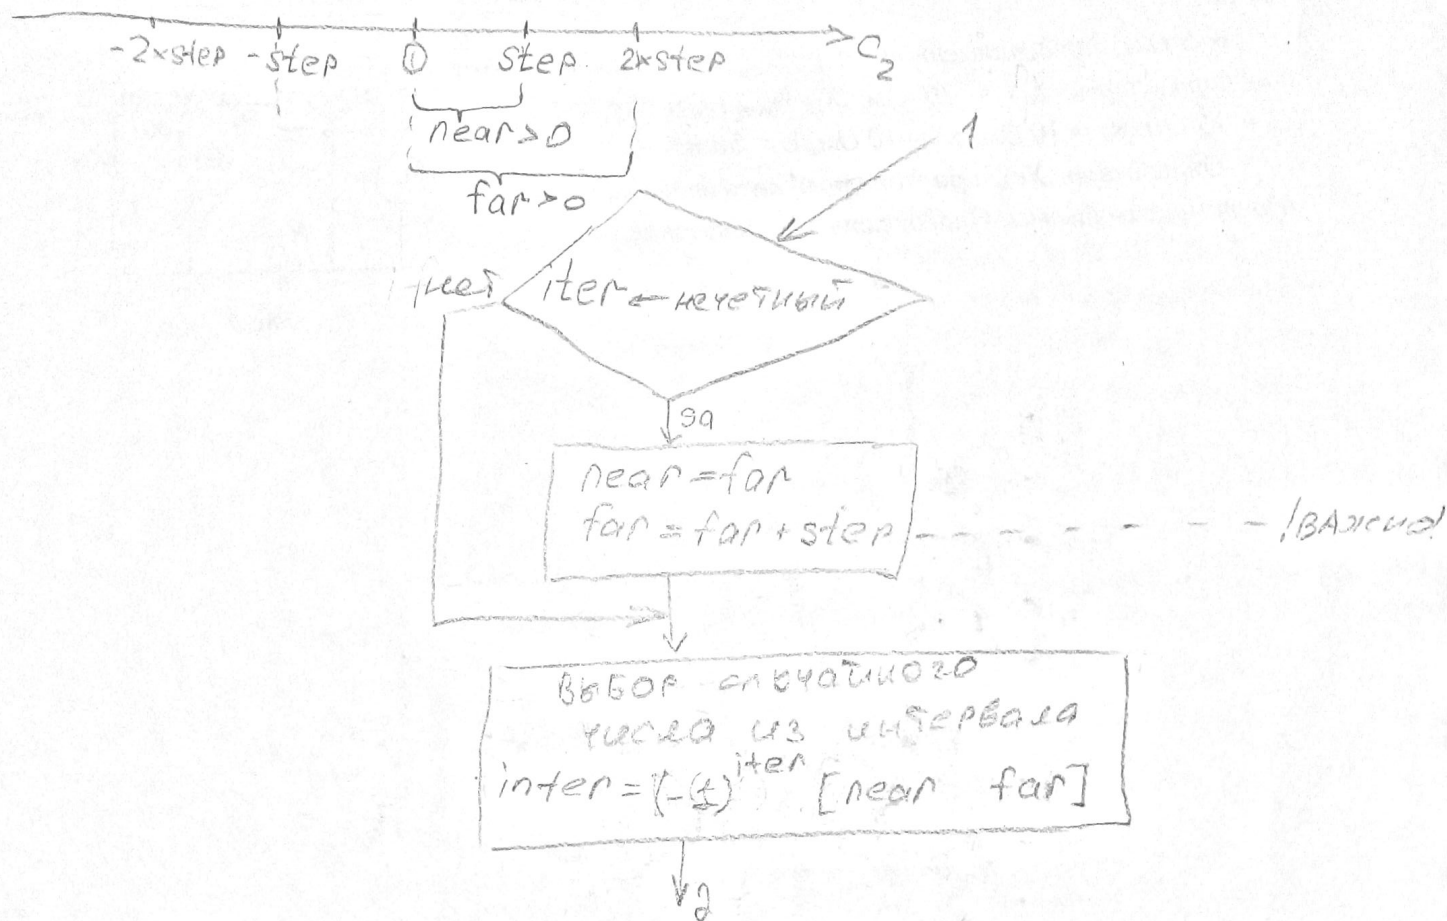 -2×step -step 0 step 2×step C₂
near>0
far>0
1
нет
iter ← нечетный
да
near=far
far=far+step
!важно!
выбор случайного
числа из интервала
inter=(-1)^iter [near far]
2